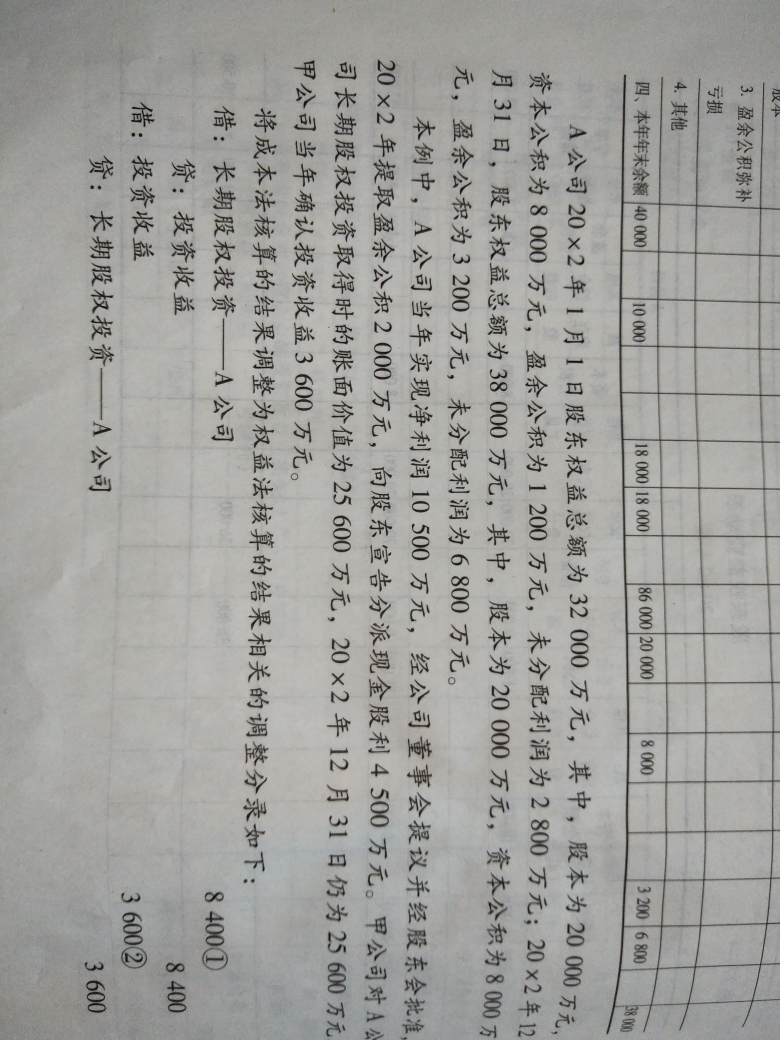 股本
3. 盈余公积弥补
亏损
4. 其他
四、本年年末余额 40 000 10 000 18 000 18 000 86 000 20 000 8 000 3 200 6 800 38 000
A 公司 20×2 年 1 月 1 日股东权益总额为 32 000 万元，其中，股本为 20 000 万元，
资本公积为 8 000 万元，盈余公积为 1 200 万元，未分配利润为 2 800 万元；20×2 年 12
月 31 日，股东权益总额为 38 000 万元，其中，股本为 20 000 万元，资本公积为 8 000 万
元，盈余公积为 3 200 万元，未分配利润为 6 800 万元。
本例中，A 公司当年实现净利润 10 500 万元，经公司董事会提议并经股东会批准，
20×2 年提取盈余公积 2 000 万元，向股东宣告分派现金股利 4 500 万元。甲公司对 A 公
司长期股权投资取得时的账面价值为 25 600 万元，20×2 年 12 月 31 日仍为 25 600 万元
甲公司当年确认投资收益 3 600 万元。
将成本法核算的结果调整为权益法核算的结果相关的调整分录如下：
借：长期股权投资——A 公司 8 400①
贷：投资收益 8 400
借：投资收益 3 600②
贷：长期股权投资——A 公司 3 600